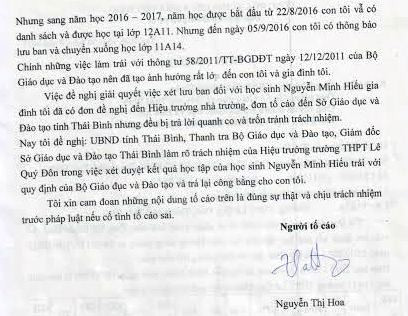 Nhưng sang năm học 2016 – 2017, năm học được bắt đầu từ 22/8/2016 con tôi vẫ có
danh sách và được học tại lớp 12A11. Nhưng đến ngày 05/9/2016 con tôi có thông báo
lưu ban và chuyển xuống học lớp 11A14.
Chính những việc làm trái với thông tư 58/2011/TT-BGDĐT ngày 12/12/2011 của Bộ
Giáo dục và Đào tạo nên đã tạo ảnh hưởng rất lớ đến con tôi và gia đình tôi.
Việc đề nghị giải quyết việc xét lưu ban đối với học sinh Nguyễn Minh Hiếu gia
đình tôi đã có đơn đề nghị đến Hiệu trưởng nhà trường, đơn tố cáo đến Sở Giáo dục và
Đào tạo tỉnh Thái Bình nhưng đều bị trả lời quanh co và trốn tránh trách nhiệm.
Nay tôi đề nghị: UBND tỉnh Thái Bình, Thanh tra Bộ Giáo dục và Đào tạo, Giám đốc
Sở Giáo dục và Đào tạo Thái Bình làm rõ trách nhiệm của Hiệu trưởng trường THPT Lê
Quý Đôn trong việc xét duyệt kết quả học tập của học sinh Nguyễn Minh Hiếu trái với
quy định của Bộ Giáo dục và Đào tạo và trả lại công bằng cho con tôi.
Tôi xin cam đoan những nội dung tố cáo trên là đúng sự thật và chịu trách nhiệm
trước pháp luật nếu cố tình tố cáo sai.
Người tố cáo
Nguyễn Thị Hoa